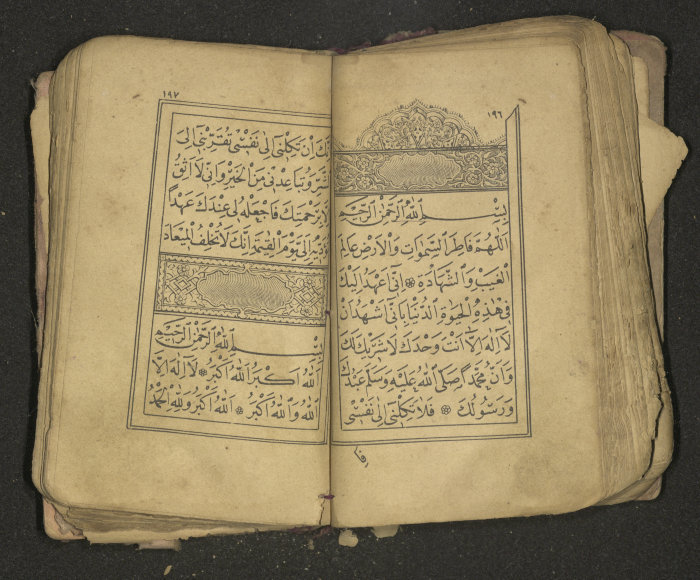 ١٩٦
بِسْمِ اللّٰهِ الرَّحْمٰنِ الرَّحِيمِ
اَللّٰهُمَّ فَاطِرَ السَّمٰوَاتِ وَالْاَرْضِ عَالِمَ
الْغَيْبِ وَالشَّهَادَةِ ۞ اِنّٖى اَعْهَدُ اِلَيْكَ
فٖى هٰذِهِ الْحَيٰوةِ الدُّنْيَا بِاَنّٖى اَشْهَدُ اَنْ
لَآ اِلٰهَ اِلَّآ اَنْتَ وَحْدَكَ لَا شَرٖيكَ لَكَ
وَاَنَّ مُحَمَّدًا صَلَّى اللّٰهُ عَلَيْهِ وَسَلَّمَ عَبْدُكَ
وَرَسُولُكَ ۞ فَلَا تَكِلْنٖى اِلٰى نَفْسٖى
١٩٧
اِنْ تَكِلْنٖى اِلٰى نَفْسٖى تُقَرِّبْنٖى اِلَى
الشَّرِّ وَتُبَاعِدْنٖى مِنَ الْخَيْرِ وَاِنّٖى لَا اَثِقُ
اِلَّا بِرَحْمَتِكَ فَاجْعَلْهُ لٖى عِنْدَكَ عَهْدًا
اِلٰى يَوْمِ الْقِيٰمَةِ اِنَّكَ لَا تُخْلِفُ الْمٖيعَادَ
بِسْمِ اللّٰهِ الرَّحْمٰنِ الرَّحِيمِ
اَللّٰهُ اَكْبَرُ اَللّٰهُ اَكْبَرُ ۞ لَآ اِلٰهَ اِلَّا
اللّٰهُ وَاللّٰهُ اَكْبَرُ ۞ اَللّٰهُ اَكْبَرُ وَلِلّٰهِ الْحَمْدُ